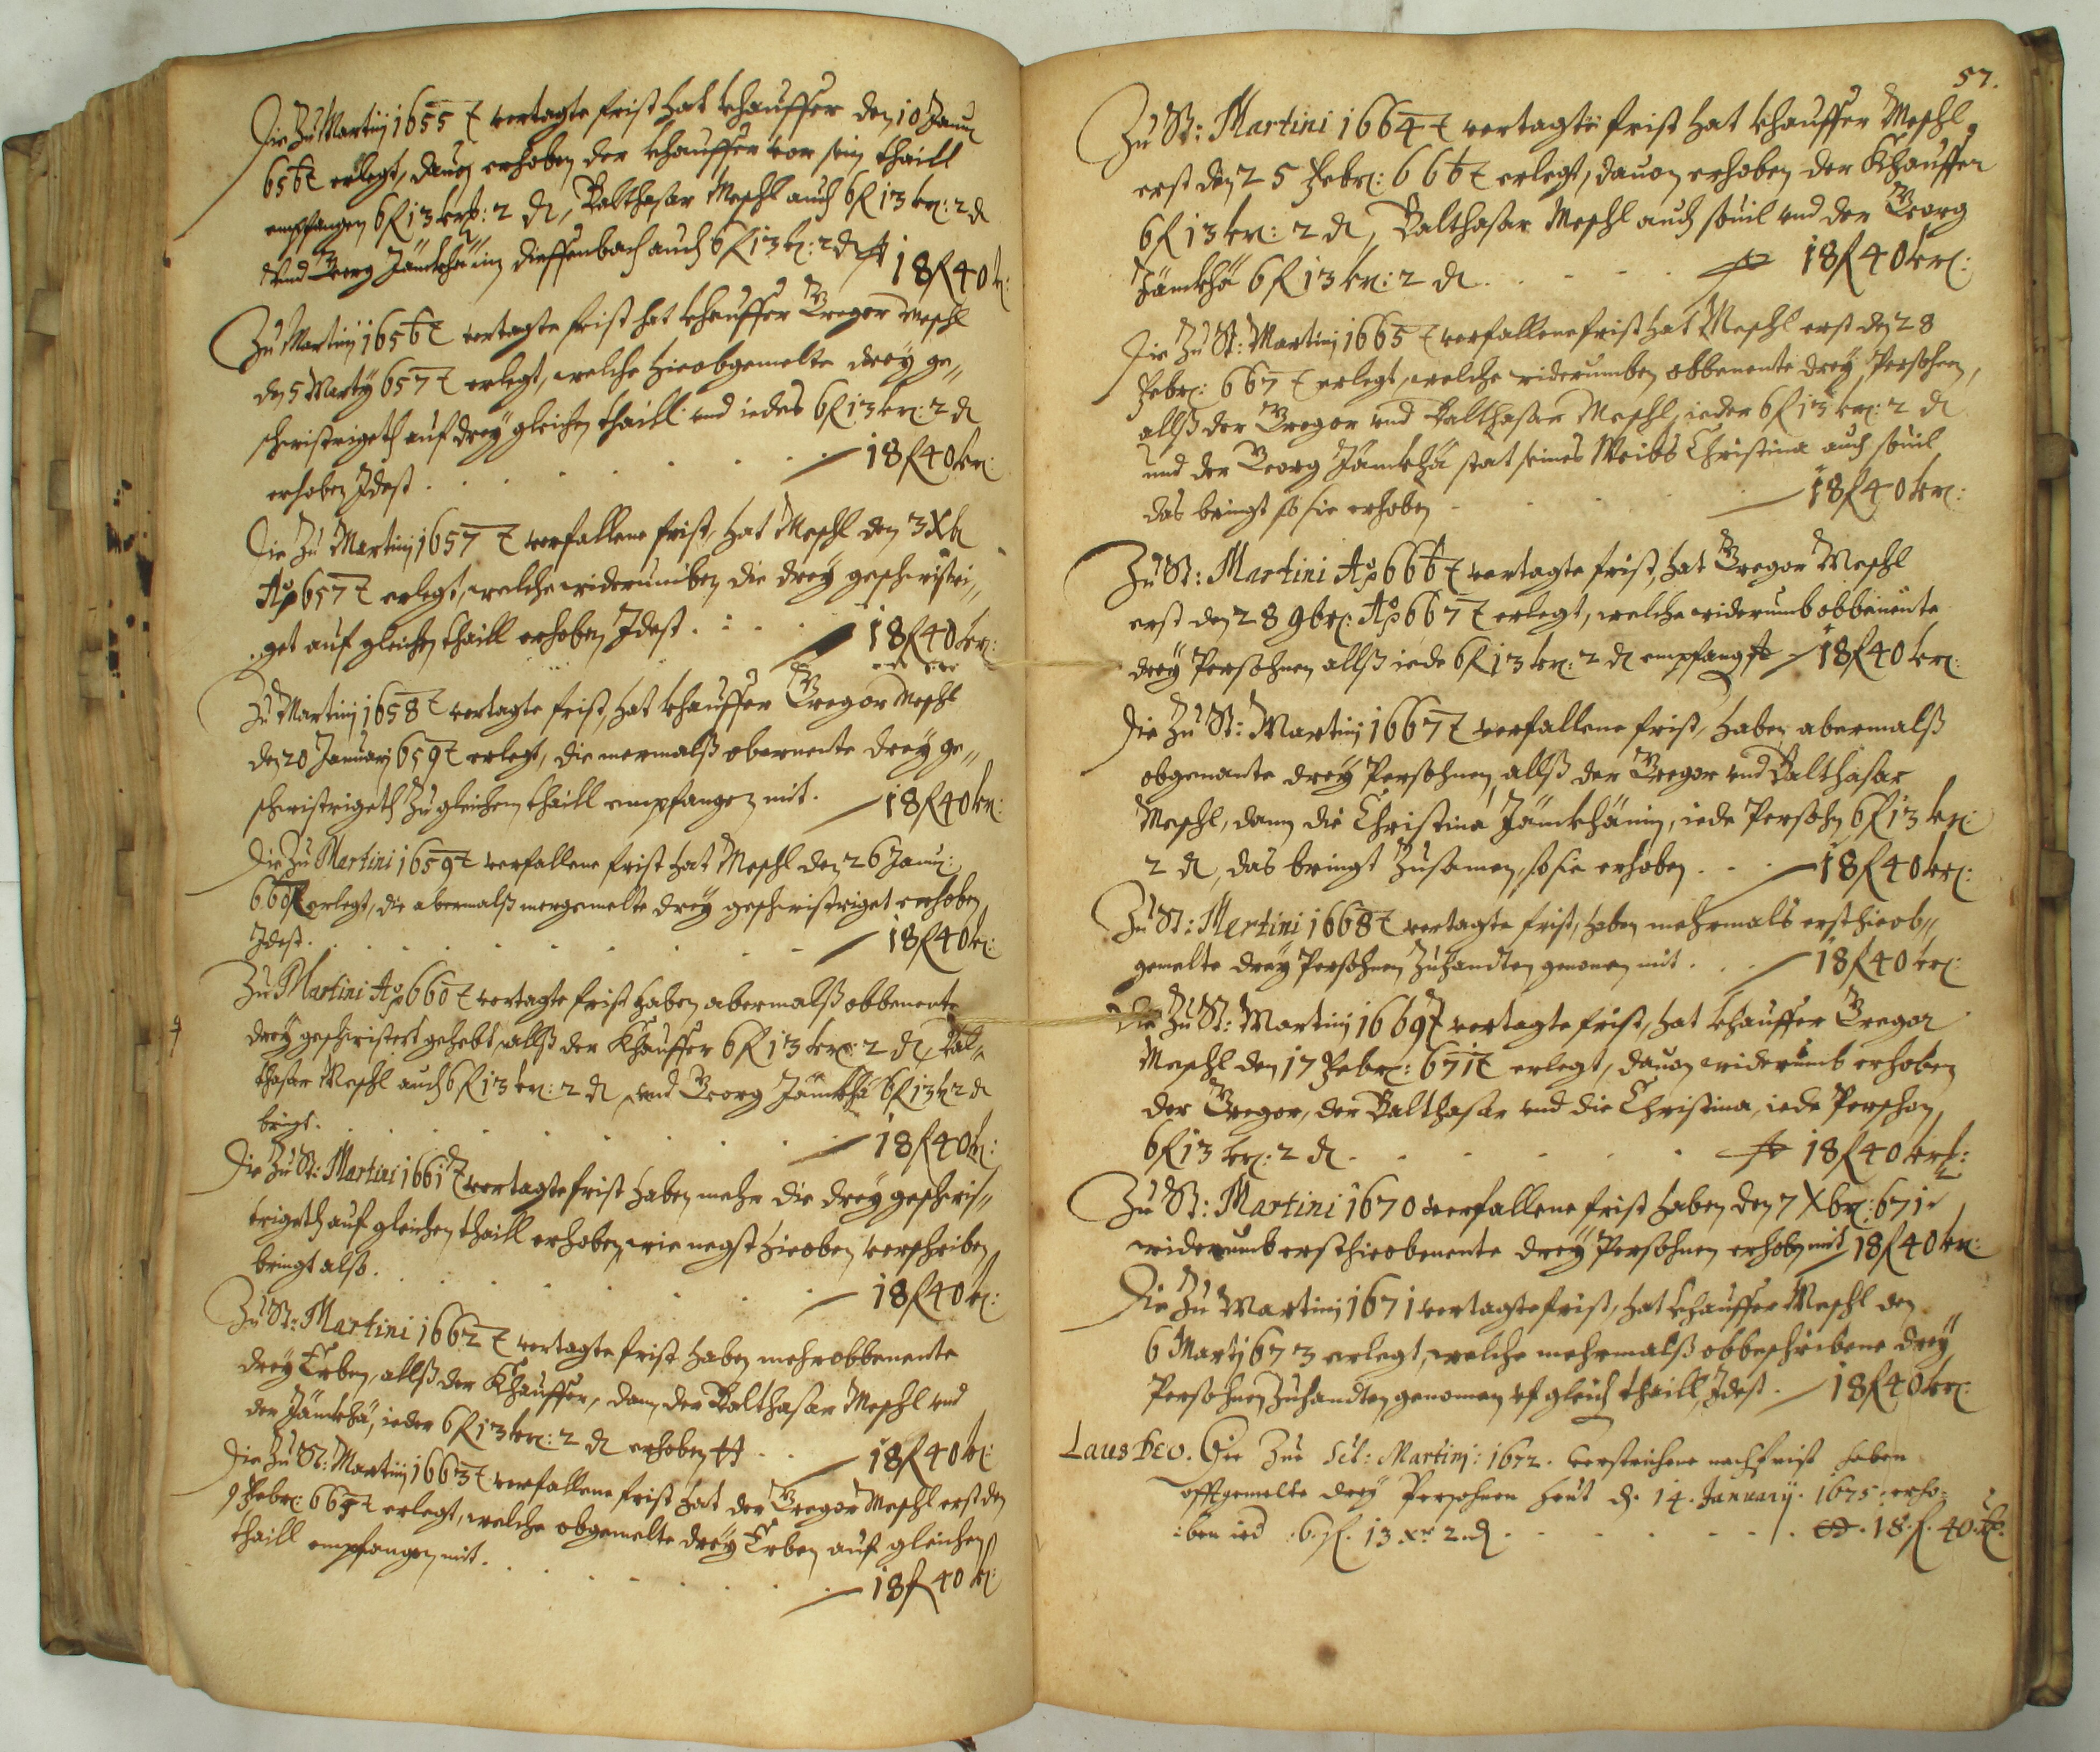 Die Zu Martinj 1655 t vertagte frist hat Khauffer den 10 Januar
656 t erlegt, dauon erhoben der Khauffer vor sein thaill
empfangen 6 fl 13 kr: 2 d, Balthasar Meschl auch 6 fl 13 kr: 2 d
Vnd Georg in dieffenbach auch 6 fl 13 kr: 2 d 18 fl 40 kr:
Zu Martinj 1656 t vertagte frist hat Khauffer Gregor Meschl
den 5 Martij 657 t erlegt, welche hieobgemelte drey ge„
schwistrigeth auf drey gleichen thaill vnd iedes 6 fl 13 kr: 2 d
erhoben Jdest . . . 18 fl 40 kr:
Die Zu Martinj 1657 t verfallene frist, hat Meschl den 3 Xb
Ao 657 t erlegt, welche widerumben die drey geschwistri„
get auf gleichen thaill erhoben Jdest . . . 18 fl 40 kr:
Zu Martinj 1658 t vertagte frist, hat Khauffer Gregor Meschl
den 20 Januarj 659 t erlegt, die mermalß obernente drey ge„
schwistrigeth Zu gleichem thaill empfangen mit . 18 fl 40 kr:
Die Zu Martini 1659 t verfallene frist hat Meschl den 26 Januar:
660 t erlegt, die abermalß mergemelte drey geschwistriget erhoben
Jdest . . . 18 fl 40 kr:
Zu Martini Ao 660 t vertagte frist haben abermalß obbenente
drey geschwistert gehebt, allß der Khauffer 6 fl 13 kr: 2 d, Bal„
thasar Meschl auch 6 fl 13 kr: 2 d, vnd Georg 6 fl 13 kr 2 d
bringt . . . 18 fl 40 kr:
Die Zu St: Martini 1661 t vertagte frist haben mehr die drey geschwis„
trigeth auf gleichen thaill erhoben, wie negst hieoben verschriben,
bringt also . . . 18 fl 40 kr:
Zu St: Martini 1662 t vertagte frist haben mehrobbenente
drey Erben, allß der Khauffer, dann der Balthasar Meschl vnd
der ieder 6 fl 13 kr: 2 d erhoben . . 18 fl 40 kr:
Die Zu St: Martinj 1663 t verfallene frist hat der Gregor Meschl erst den
9 Febr: erlegt, welche obgemelte drey Erben auf gleichen
thaill empfangen mit . . . 18 fl 40 kr:
57.
Zu St: Martini 1664 t vertagte frist hat Khauffer Meschl
erst den 25 Febr: 666 t erlegt, dauon erhoben der Khauffer
6 fl 13 kr: 2 d, Balthasar Meschl auch souil vnd der Georg
6 fl 13 kr: 2 d . . . 18 fl 40 kr:
Die Zu St: Martinj 1665 t verfallene frist hat Meschl erst den 28
Febr: 667 t erlegt, welche widerumben obbenente drey Persohnen,
allß der Gregor vnd Balthasar Meschl, ieder 6 fl 13 kr: 2 d
und der Georg stat seines Weibs Christina auch souil
das bringt so sie erhoben . . . 18 fl 40 kr:
Zu St: Martini Ao 666 t vertagte frist, hat Gregor Meschl
erst den 28 9br: Ao 667 t erlegt, welche widerumb obbenente
drey Persohnen allß iede 6 fl 13 kr: 2 d empfang 18 fl 40 kr:
Die Zu St: Martinj 1667 t verfallene frist, haben abermalß
obgenante drey Persohnen, allß der Gregor vnd Balthasar
Meschl, dann die Christina iede Persohn 6 fl 13 kr:
2 d, das bringt Zusamen, so sie erhoben . . 18 fl 40 kr:
Zu St: Martini 1668 t vertagte frist, haben mehrmals erst hieob„
gemelte drey Persohnen Zuhandten genomen mit . . . 18 fl 40 kr:
Die Zu St: Martinj 1669 t vertagte frist, hat Khauffer Gregor
Meschl den 17 Febr: 671 t erlegt, dauon widerumb erhoben
der Gregor, der Balthasar vnd die Christina, iede Persohn,
6 fl 13 kr: 2 d . . . 18 fl 40 kr:
Zu St: Martini 1670 verfallene frist haben den 7 Xbr: 671
widerumb erst hieobenente drey Persohnen erhoben mit 18 fl 40 kr:
Die Zu Martinj 1671 vertagte frist, hat Khauffer Meschl den
6 Martj 673 erlegt, welche mehrmalß obbeschribene drey
Persohnen Zuhandten genomen vf gleich thaill, Jdest . 18 fl 40 kr:
Laus Deo. Die Zue Sct: Martinj: 1672. verstrichene nachfrist haben
offtgemelte drey Persohnen heut d. 14. January. 1675. erho=
:ben ied 6. fl. 13. xr 2. d. . . . 18. fl. 40. xr.